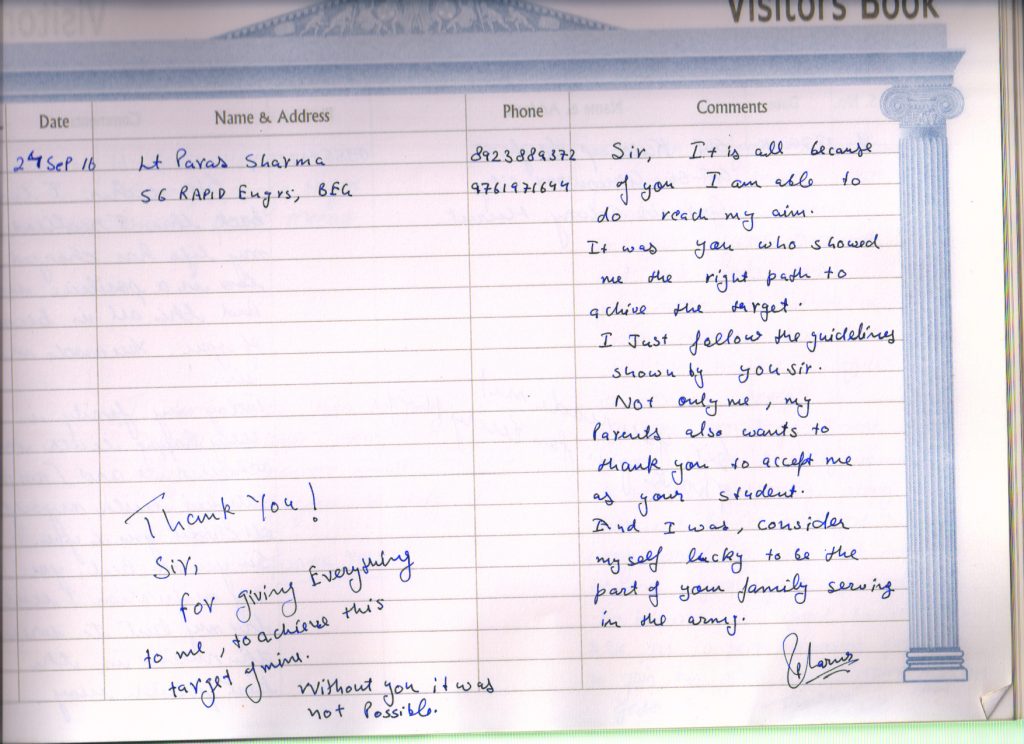 VISITORS BOOK
Date Name & Address Phone Comments
24 Sep 16 Lt Paras Sharma 8923889372 Sir, It is all because
56 RAPID Engrs, BEG 9761971644 of you I am able to
do reach my aim.
It was you who showed
me the right path to
achive the target.
I Just follow the guidelines
shown by you sir.
Not only me, my
Parents also wants to
thank you to accept me
as your student.
And I was, consider
myself lucky to be the
part of your family serving
in the army.
Thank You!
Sir,
for giving Everything
to me, to achieve this
target of mine.
Without you it was
not Possible.